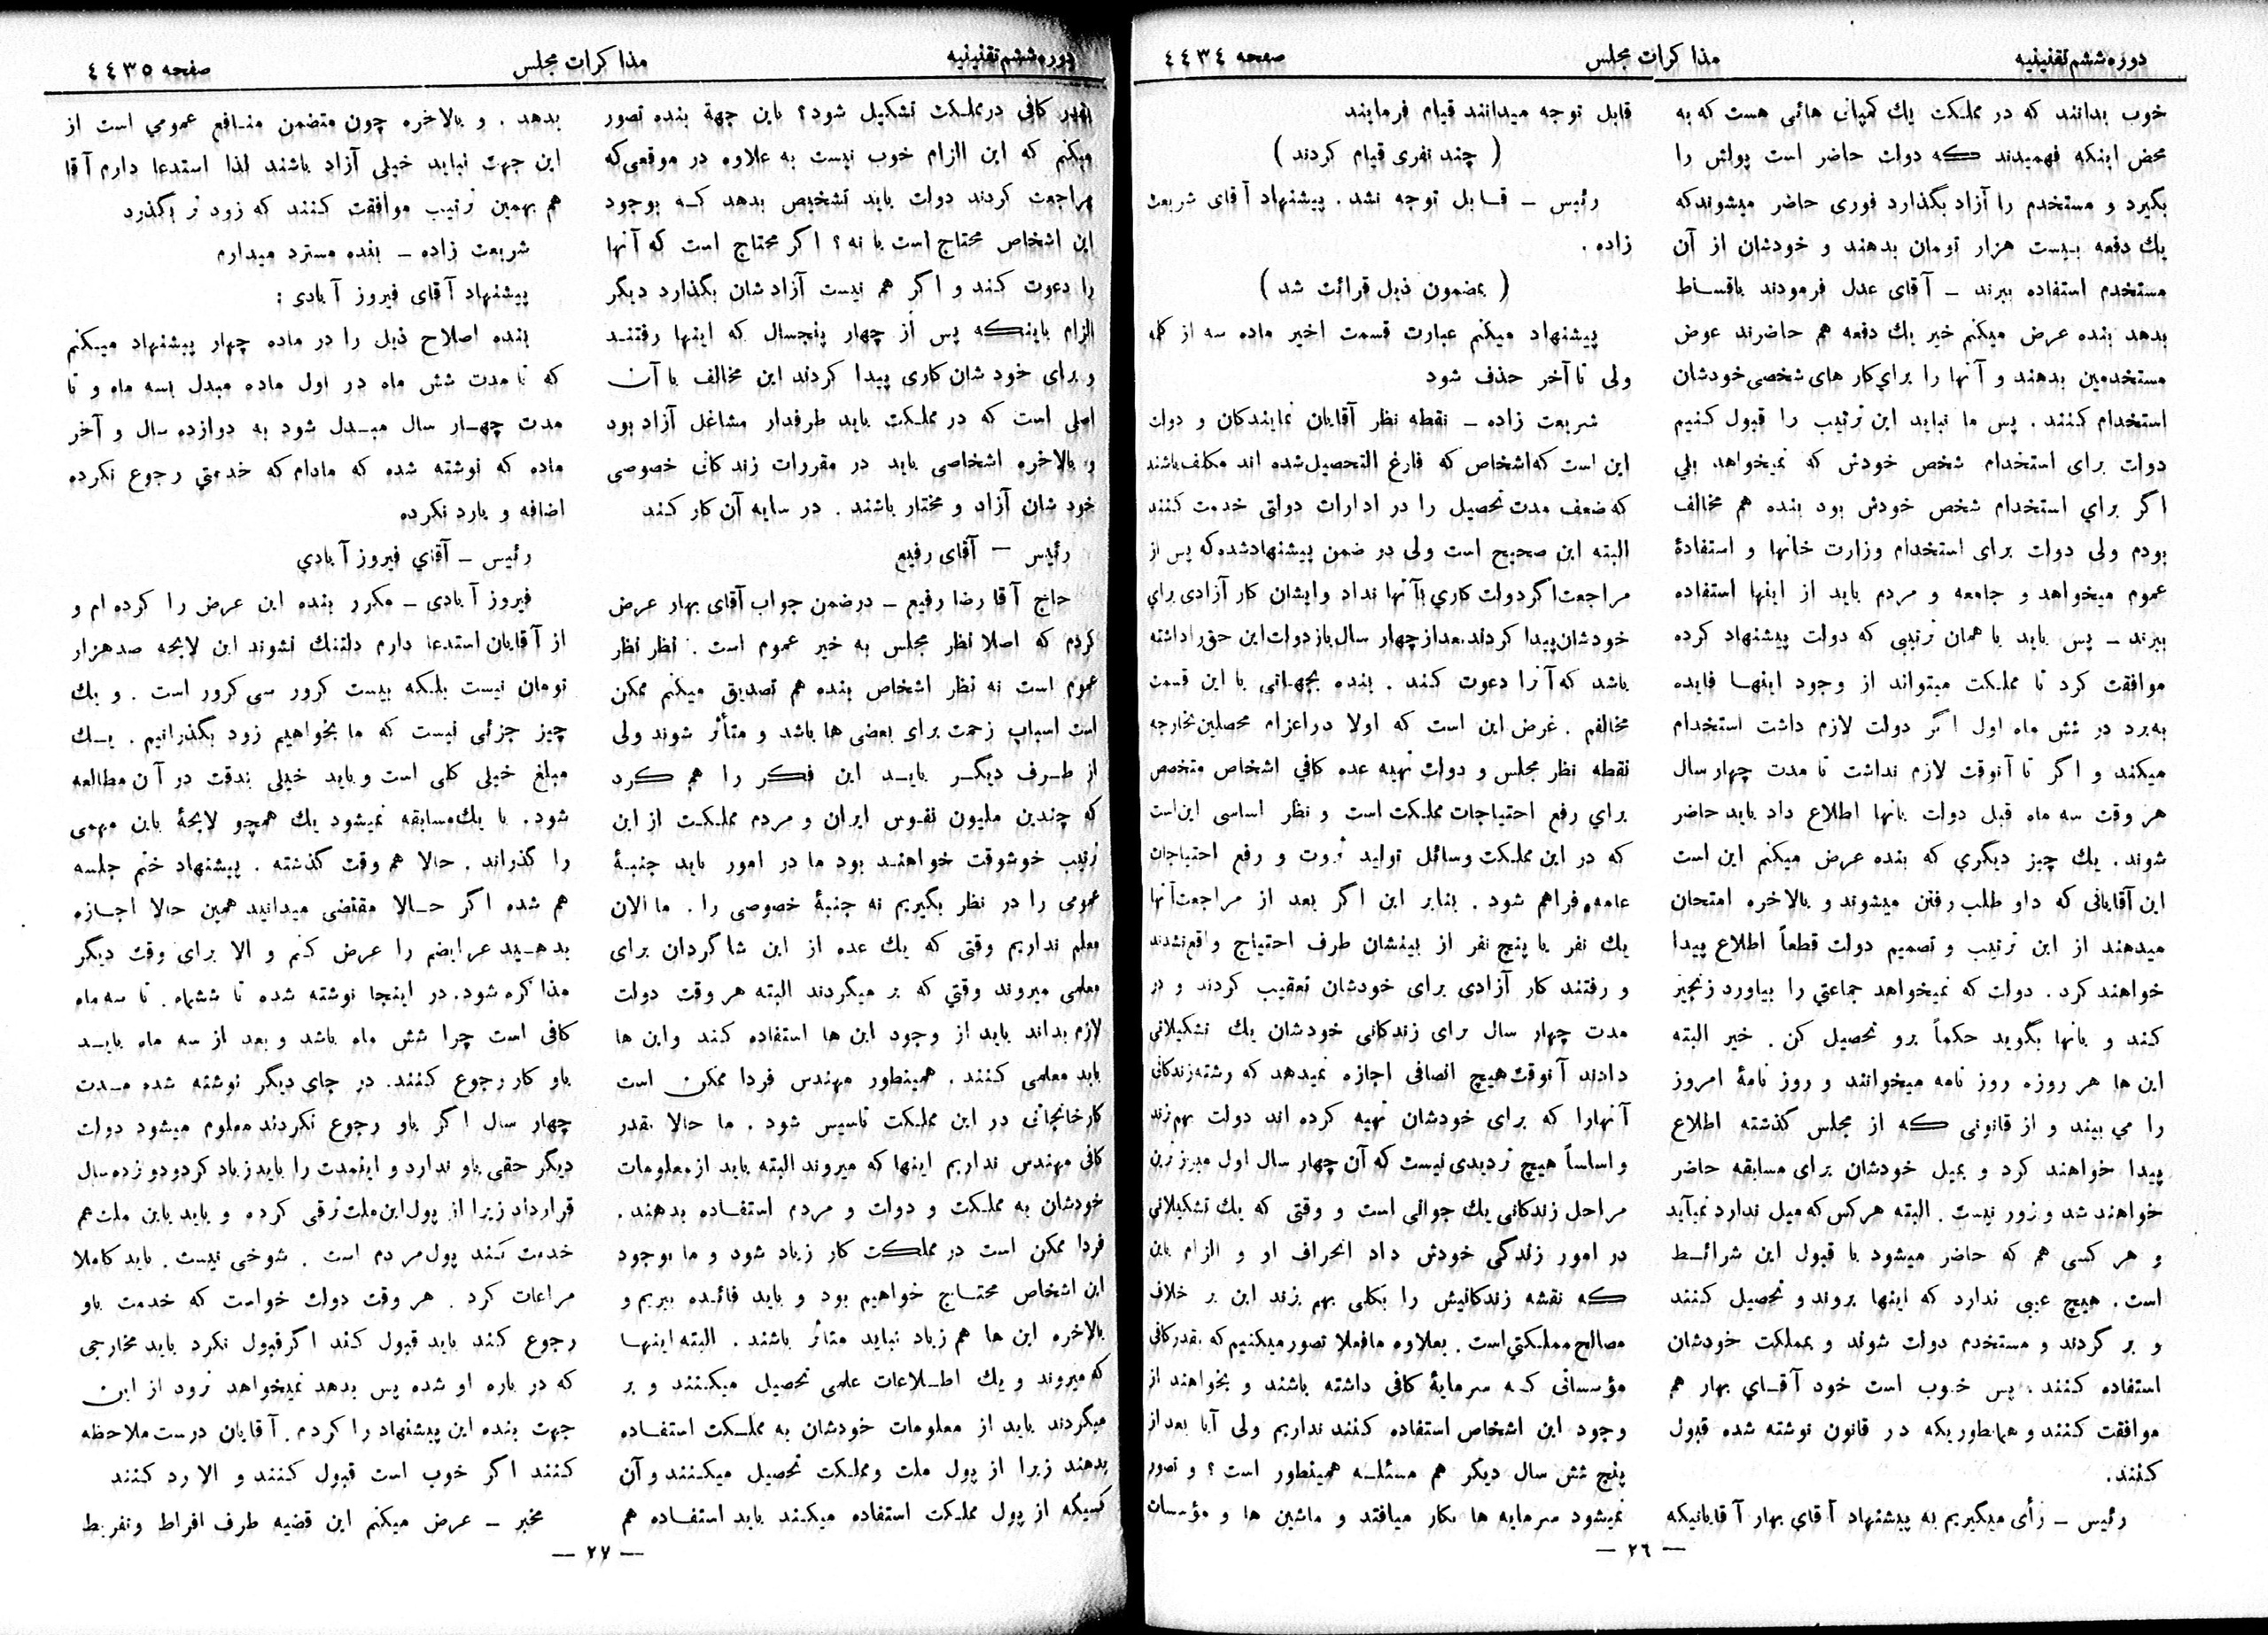 دوره ششم تقنینیه
مذاکرات مجلس
صفحه ٤٤٣٤
خوب بدانند که در مملکت یك کمپانی هائی هست که به
محض اینکه فهمیدند که دولت حاضر است پولش را
بگیرد و مستخدم را آزاد بگذارد فوری حاضر میشوند که
یك دفعه بیست هزار تومان بدهند و خودشان از آن
مستخدم استفاده ببرند ــ آقای عدل فرمودند باقساط
بدهد بنده عرض میکنم خیر یك دفعه هم حاضرند عوض
مستخدمین بدهند و آنها را برای کار های شخصی خودشان
استخدام کنند . پس ما نباید این ترتیب را قبول کنیم
دولت برای استخدام شخص خودش که نمیخواهد بلي
اگر براي استخدام شخص خودش بود بنده هم مخالف
بودم ولی دولت برای استخدام وزارت خانها و استفادۀ
عموم میخواهد و جامعه و مردم باید از اینها استفاده
ببرند ــ پس باید با همان ترتیبی که دولت پیشنهاد کرده
موافقت کرد تا مملکت میتواند از وجود اینها فایده
به‌برد در شش ماه اول اگر دولت لازم داشت استخدام
میکند و اگر تا آنوقت لازم نداشت تا مدت چهار سال
هر وقت سه ماه قبل دولت بآنها اطلاع داد باید حاضر
شوند . یك چیز دیگري که بنده عرض میکنم این است
این آقایانی که داو طلب رفتن میشوند و بالاخره امتحان
میدهند از این ترتیب و تصمیم دولت قطعاً اطلاع پیدا
خواهند کرد . دولت که نمیخواهد جماعتي را بیاورد زنجیر
کند و بآنها بگوید حکماً برو تحصیل کن . خیر البته
این ها هر روزه روز نامه میخوانند و روز نامۀ امروز
را مي بیند و از قانونی که از مجلس گذشته اطلاع
پیدا خواهند کرد و بمیل خودشان برای مسابقه حاضر
خواهند شد و زور نیست . البته هر کس که میل ندارد نمیآید
و هر کسی هم که حاضر میشود با قبول این شرائط
است . هیچ عیبی ندارد که اینها بروند و تحصیل کنند
و بر گردند و مستخدم دولت شوند و بمملکت خودشان
استفاده کنند . پس خوب است خود آقاي بهار هم
موافقت کنند و همانطوریکه در قانون نوشته شده قبول
کنند .
رئیس ــ رأی میگیریم به پیشنهاد آقاي بهار آقایانیکه
قابل توجه میدانند قیام فرمایند
( چند نفری قیام کردند )
رئیس ــ قابل توجه نشد . پیشنهاد آقای شریعت
زاده .
( بمضمون ذیل قرائت شد )
پیشنهاد میکنم عبارت قسمت اخیر ماده سه از کلمه
ولی تا آخر حذف شود
شریعت زاده ــ نقطه نظر آقایان نمایندگان و دولت
این است که اشخاص که فارغ التحصیل شده اند مکلف باشند
که ضعف مدت تحصیل را در ادارات دولتی خدمت کنند
البته این صحیح است ولی در ضمن پیشنهاد شده که پس از
مراجعت اگر دولت کاري بآنها نداد و ایشان کار آزادی براي
خودشان پیدا کردند بعد از چهار سال باز دولت این حق را داشته
باشد که آنرا دعوت کند . بنده بجهاتی با این قسمت
مخالفم . غرض این است که اولا در اعزام محصلین بخارجه
نقطه نظر مجلس و دولت تهیه عده کافي اشخاص متخصص
براي رفع احتیاجات مملکت است و نظر اساسی این است
که در این مملکت وسائل تولید ثروت و رفع احتیاجات
عامه فراهم شود . بنابر این اگر بعد از مراجعت آنها
یك نفر یا پنج نفر از بینشان طرف احتیاج واقع نشدند
و رفتند کار آزادی برای خودشان تعقیب کردند و در
مدت چهار سال برای زندگانی خودشان یك تشکیلاتي
دادند آنوقت هیچ انصافی اجازه نمیدهد که رشته زندگانی
آنهارا که برای خودشان تهیه کرده اند دولت بهم زند
و اساساً هیچ تردیدی نیست که آن چهار سال اول مبرز ترین
مراحل زندگانی یك جوانی است و وقتی که یك تشکیلاتي
در امور زندگي خودش داد انحراف او و الزام باین
که نقشه زندگانیش را بکلی بهم بزند این بر خلاف
مصالح مملکتي است . بعلاوه ما فعلا تصور میکنیم که بقدر کافی
مؤسساتی که سرمایۀ کافی داشته باشند و بخواهند از
وجود این اشخاص استفاده کنند نداریم ولی آیا بعد از
پنج شش سال دیگر هم مسئله همینطور است ؟ و تصور
نمیشود سرمایه ها بکار میافتد و ماشین ها و مؤسسات
ــ ٢٦ ــ
دوره ششم تقنینیه
مذاکرات مجلس
صفحه ٤٤٣٥
بقدر کافی در مملکت تشکیل شود ؟ باین جهة بنده تصور
میکنم که این الزام خوب نیست به علاوه در موقعی که
مراجعت کردند دولت باید تشخیص بدهد که بوجود
این اشخاص محتاج است یا نه ؟ اگر محتاج است که آنها
را دعوت کند و اگر هم نیست آزاد شان بگذارد دیگر
الزام باینکه پس از چهار پنجسال که اینها رفتند
و برای خود شان کاری پیدا کردند این مخالف با آن
اصلی است که در مملکت باید طرفدار مشاغل آزاد بود
و بالاخره اشخاصی باید در مقررات زندگانی خصوصی
خود شان آزاد و مختار باشند . در سایه آن کار کند
رئیس ــ آقای رفیع
حاج آقا رضا رفیع ــ در ضمن جواب آقای بهار عرض
کردم که اصلا نظر مجلس به خیر عموم است . نظر نظر
عموم است نه نظر اشخاص بنده هم تصدیق میکنم ممکن
است اسباب زحمت برای بعضی ها باشد و متأثر شوند ولی
از طرف دیگر باید این فکر را هم کرد
که چندین ملیون نفوس ایران و مردم مملکت از این
ترتیب خوشوقت خواهند بود ما در امور باید جنبۀ
عمومی را در نظر بگیریم نه جنبۀ خصوصی را . ما الان
معلم نداریم وقتی که یك عده از این شاگردان برای
معلمی میروند وقتي که بر میگردند البته هر وقت دولت
لازم بداند باید از وجود این ها استفاده کند و این ها
باید معلمی کنند . همینطور مهندس فردا ممکن است
کارخانجاتی در این مملکت تاسیس شود . ما حالا بقدر
کافی مهندس نداریم اینها که میروند البته باید از معلومات
خودشان به مملکت و دولت و مردم استفاده بدهند .
فردا ممکن است در مملکت کار زیاد شود و ما بوجود
این اشخاص محتاج خواهیم بود و باید فائده ببریم و
بالاخره این ها هم زیاد نباید متاثر باشند . البته اینها
که میروند و یك اطلاعات علمی تحصیل میکنند و بر
میگردند باید از معلومات خودشان به مملکت استفاده
بدهند زیرا از پول ملت و مملکت تحصیل میکنند و آن
کسیکه از پول مملکت استفاده میکند باید استفاده هم
بدهد . و بالاخره چون متضمن منافع عمومي است از
این جهت نباید خیلی آزاد باشند لذا استدعا دارم آقا
هم بهمین ترتیب موافقت کنند که زود تر بگذرد
شریعت زاده ــ بنده مسترد میدارم
پیشنهاد آقای فیروز آبادی :
بنده اصلاح ذیل را در ماده چهار پیشنهاد میکنم
که تا مدت شش ماه در اول ماده مبدل بسه ماه و تا
مدت چهار سال مبدل شود به دوازده سال و آخر
ماده که نوشته شده که مادام که خدمتي رجوع نکرده
اضافه و یا رد نکرده
رئیس ــ آقاي فیروز آبادي
فیروز آبادی ــ مکرر بنده این عرض را کرده ام و
از آقایان استدعا دارم دلتنك نشوند این لایحه صد هزار
تومان نیست بلکه بیست کرور سی کرور است . و یك
چیز جزئی نیست که ما بخواهیم زود بگذرانیم . یك
مبلغ خیلی کلی است و باید خیلی بدقت در آن مطالعه
شود . با یك مسابقه نمیشود یك همچو لایحۀ باین مهمی
را گذراند . حالا هم وقت گذشته . پیشنهاد ختم جلسه
هم شده اگر حالا مقتضی میدانید همین حالا اجازه
بدهید عرایضم را عرض کنم و الا برای وقت دیگر
مذاکره شود . در اینجا نوشته شده تا ششماه . تا سه ماه
کافی است چرا شش ماه باشد و بعد از سه ماه باید
باو کار رجوع کنند . در جای دیگر نوشته شده مدت
چهار سال اگر باو رجوع نکردند معلوم میشود دولت
دیگر حقی باو ندارد و اینمدت را باید زیاد کرد و دوازده سال
قرار داد زیرا از پول این ملت ترقی کرده و باید باین ملت هم
خدمت کند پول مردم است . شوخی نیست . باید کاملا
مراعات کرد . هر وقت دولت خواست که خدمت باو
رجوع کند باید قبول کند اگر قبول نکرد باید مخارجی
که در باره او شده پس بدهد نمیخواهد برود از این
جهت بنده این پیشنهاد را کردم . آقایان درست ملاحظه
کنند اگر خوب است قبول کنند و الا رد کنند
مخبر ــ عرض میکنم این قضیه طرف افراط و تفریط
ــ ٢٧ ــ